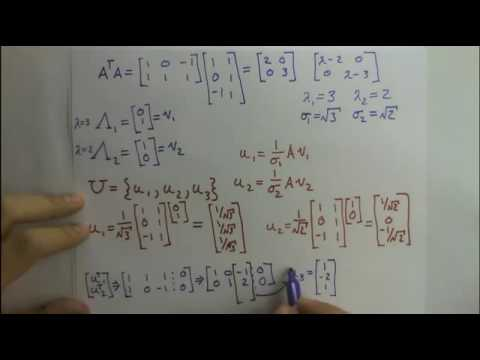 AᵀA = [1 0 -1; 1 1 1] [1 1; 0 1; -1 1] = [2 0; 0 3] [λ-2 0; 0 λ-3]
λ₁=3 λ₂=2
σ₁=√3 σ₂=√2
λ=3 Λ₁ = [0; 1] = v₁
λ=2 Λ₂ = [1; 0] = v₂
u₁ = 1/σ₁ A v₁
U = {u₁, u₂, u₃} u₂ = 1/σ₂ A v₂
u₁ = 1/√3 [1 1; 0 1; -1 1] [0; 1] = [1/√3; 1/√3; 1/√3] u₂ = 1/√2 [1 1; 0 1; -1 1] [1; 0] = [1/√2; 0; -1/√2]
[u₁ᵀ; u₂ᵀ] ⇒ [1 1 1 ⋮ 0; 1 0 -1 ⋮ 0] ⇒ [1 0 -1 ⋮ 0; 0 1 2 ⋮ 0] ₃ = [1; -2; 1]